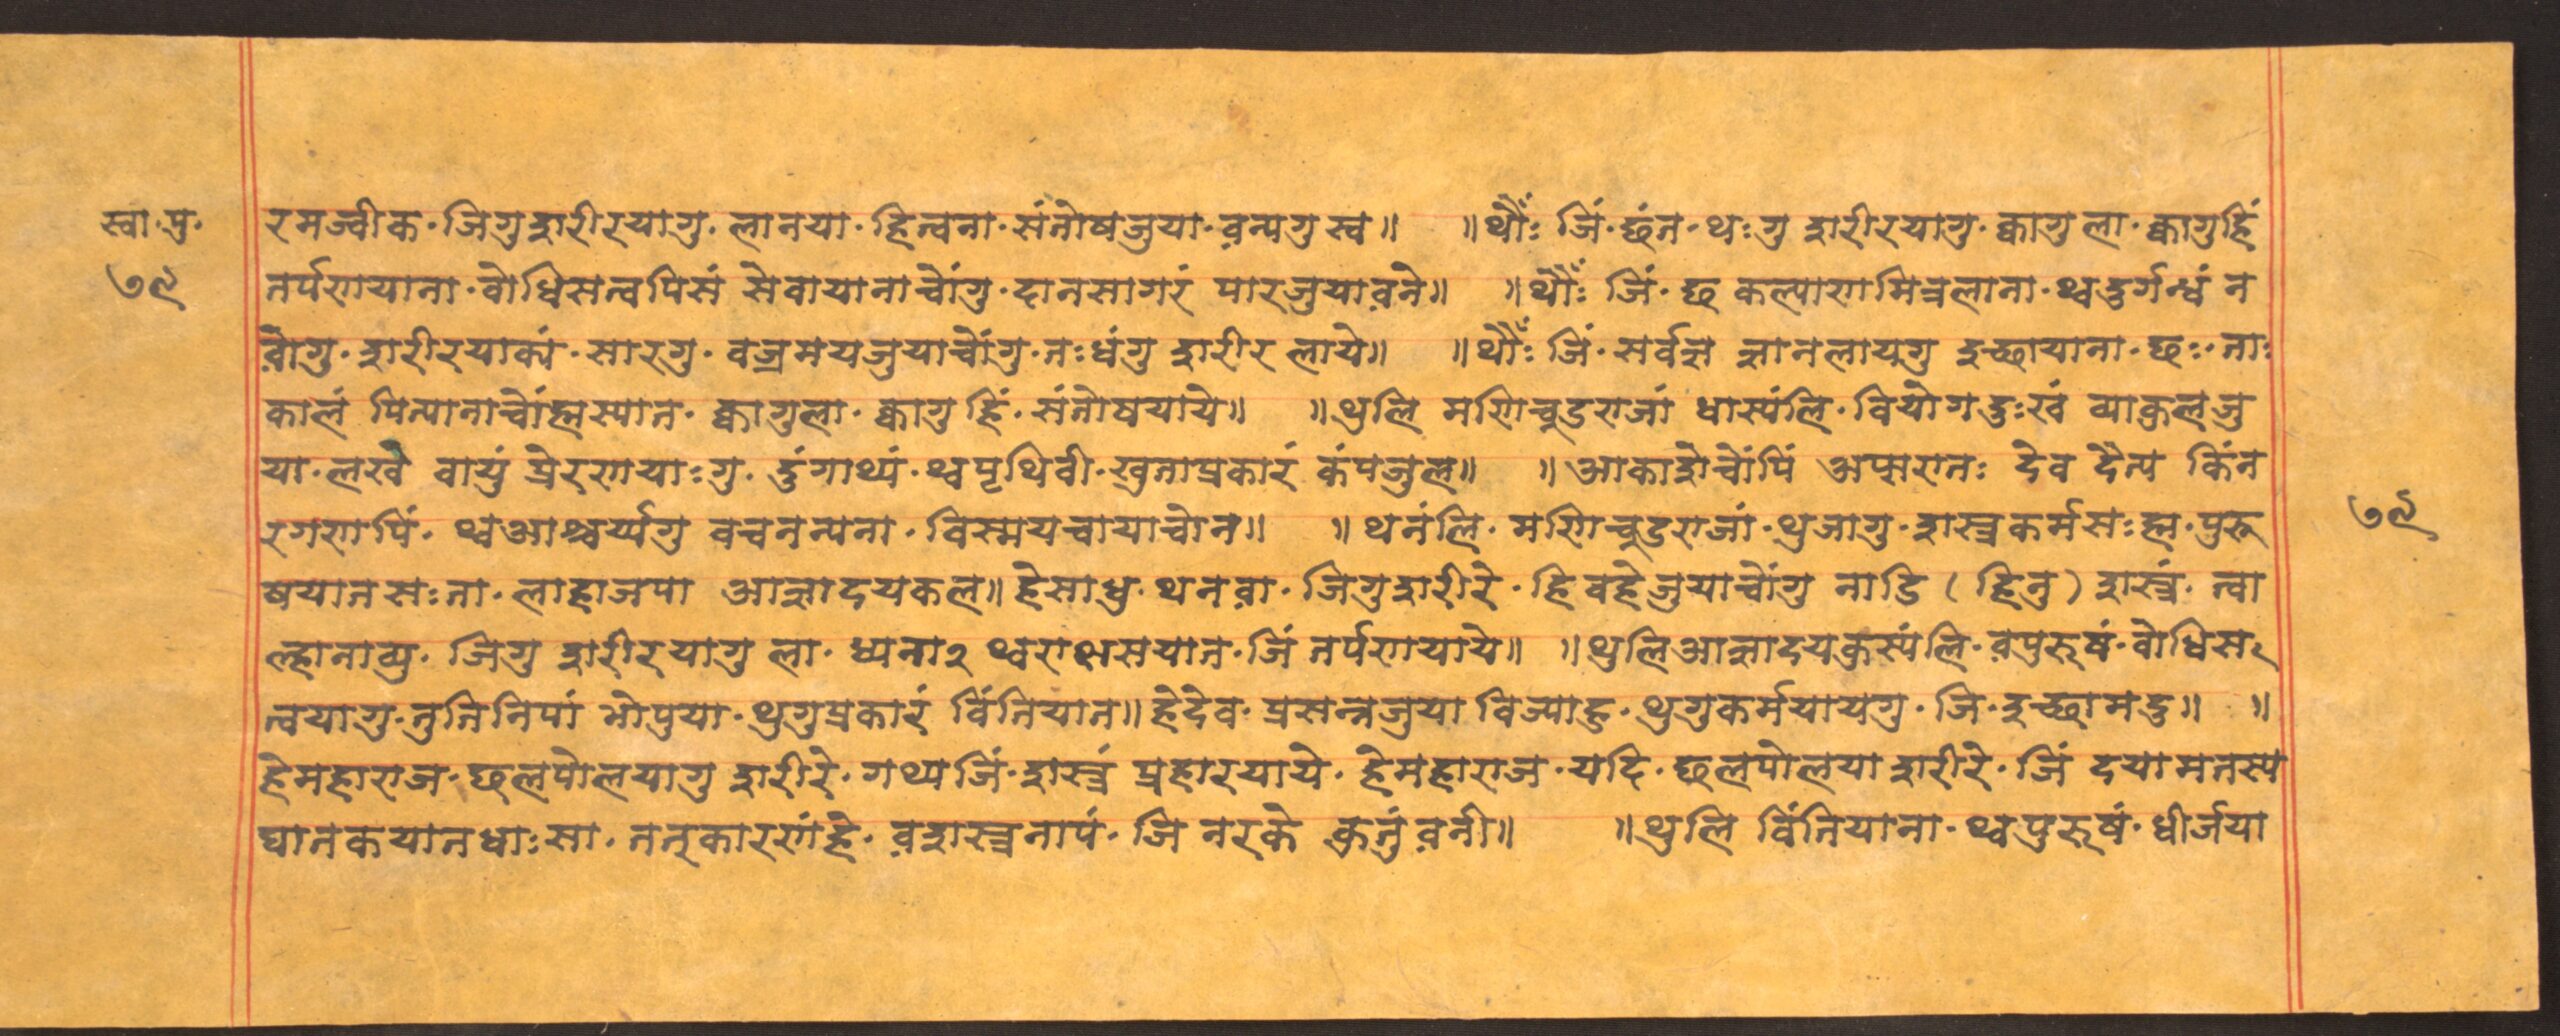 स्वा॰पु॰
७९
रमज्वीक॰जिगुशरीरयागु॰लानया॰हित्वना॰संतोषजुया॰व़न्यगुस्व॥ ॥थौँः जिं॰छंन॰थःगु शरीरयागु॰क्वागु ला॰क्वागुहिं
तर्पणयाना॰बोधिसत्वपिसं सेवायानाचोंगु॰दानसागरं पारजुयाव़ने॥ ॥थौँः जिं॰छ कल्याणमित्रलाना॰थ्वदुर्गन्धं न
व़ोगु॰शरीरयाकां॰सारगु॰वज्रमयजुयाचोंगु॰तःधंगु शरीर लाये॥ ॥थौँः जिं॰सर्वज्ञ ज्ञानलायगु इच्छायाना॰छः॰ताः
कालं पित्यानाचोंह्मस्यात॰क्वागुला॰क्वागु हिं॰संतोषयाये॥ ॥थुलि मणिचूडराजां धास्यंलि॰वियोगदुःखं व्याकुलजु
या॰लखे वायुं प्रेरणायाःगु॰डुंगाथ्यं॰थ्वपृथिवी॰खुताप्रकारं कंपजुल॥ ॥आकाशेचोंपिं अप्सरातः देव दैत्य किंन
रगणपिं॰थ्वआश्चर्य्यगु वचनन्यना॰विस्मयचायाचोन॥ ॥थनंलि॰मणिचूडराजां॰थुजागु॰शस्त्रकर्मसःह्म॰पुरू
षयातसःता॰लाहाजपा आज्ञादयकल॥हेसाधु॰थनव़ा॰जिगुशरीरे॰हिवहेजुयाचोंगु नाडि (हिनु) शस्त्रं॰त्वा
ल्हानाव्यु॰जिगु शरीरयागु ला॰ध्यना२ थ्वराक्षसयात॰जिं तर्पणयाये॥ ॥थुलिआज्ञादयकुस्यंलि॰व़पुरूषं॰बोधिस२
त्वयागु॰तुतिनिपां भोपुया॰थुगुप्रकारं विंतियात॥हेदेव॰प्रसन्नजुया विज्याहु॰थुगुकर्मयायगु॰जि॰इच्छामदु॥ ॥
हेमहाराज॰छलपोलयागु शरीरे॰गथ्यजिं॰शस्त्रं प्रहारयाये॰हेमहाराज॰यदि॰छलपोलया शरीरे॰जिं दयामतस्य
घातकयातधाःसा॰तत्कारणंहे॰व़शस्त्रनापं॰जि नरके क्रतुंव़नी॥ ॥थुलि विंतियाना॰थ्वपुरूषं॰धीर्जया
७९